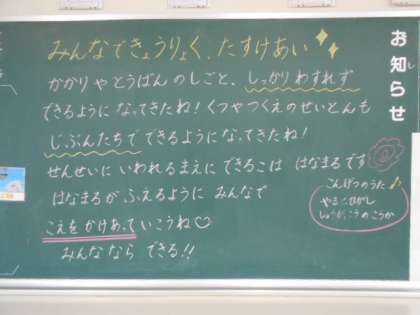 お知らせ
し
みんなできょうりょく、たすけあい
かかりやとうばんのしごと、しっかりわすれず
できるようになってきたね!くつやつくえのせいとんも
じぶんたちでできるようになってきたね!
せんせいにいわれるまえにできるこは はなまるです
はなまるがふえるように みんなで
こえをかけあっていこうね♡
みんなならできる!!
こんげつのうた♪
しょうがっこうのこうか